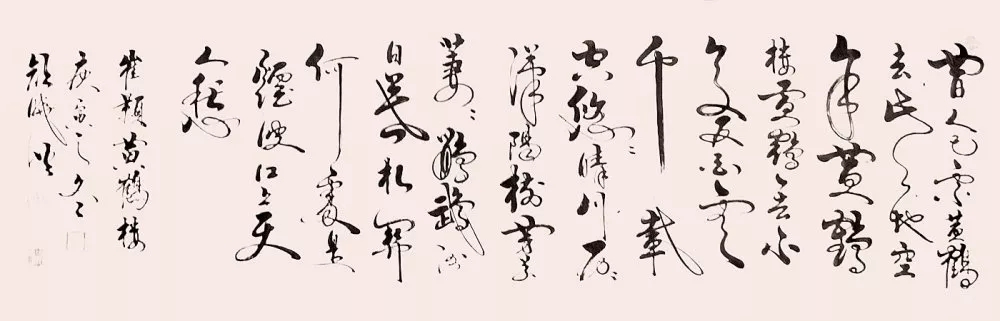 昔人已乘黄鶴
去此地空
餘黄鶴
樓黄鶴一去不
復返白雲
千載
空悠々晴川歷々
漢陽樹芳草
萋々鸚鵡洲
日暮鄉關
何處是
煙波江上使
人愁
崔顥黄鶴樓
庚寅之冬